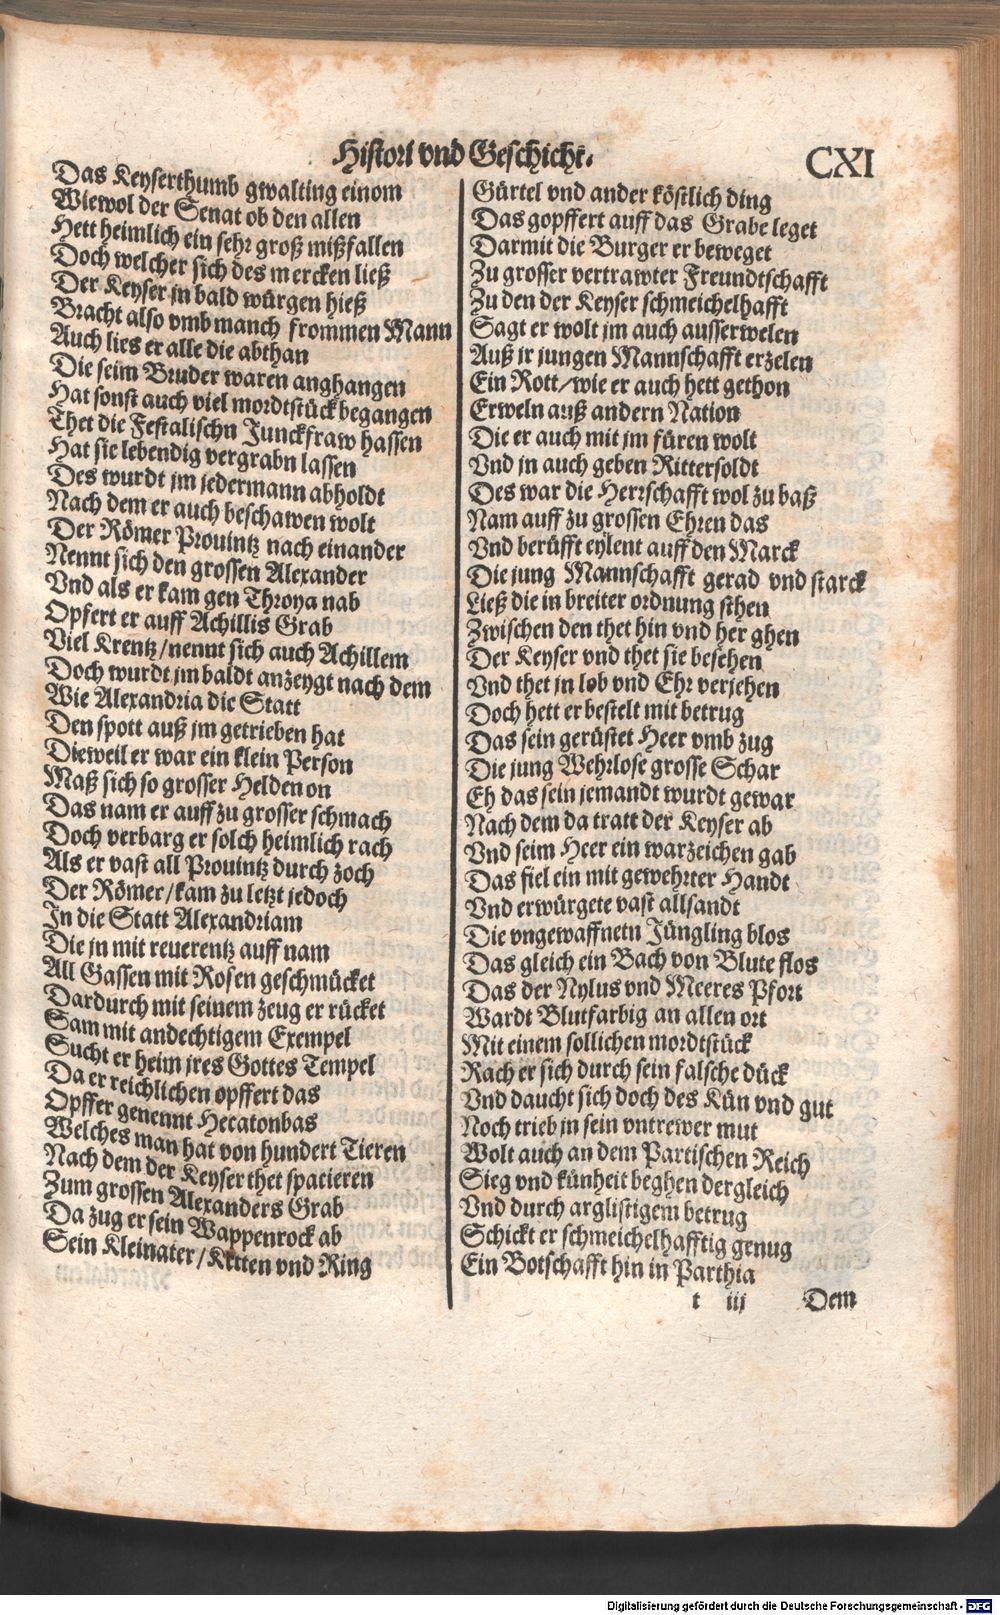 Histori vnd Geschicht.
CXI
Das Keyserthumb gwalting einom
Wiewol der Senat ob den allen
Hett heimlich ein sehr groß mißfallen
Doch welcher sich des mercken ließ
Der Keyser jn bald würgen hieß
Bracht also vmb manch frommen Mann
Auch lies er alle die abthan
Die seim Bruder waren anghangen
Hat sonst auch viel mordtstück begangen
Thet die Festalischn Junckfraw hassen
Hat sie lebendig vergrabn lassen
Des wurdt jm jedermann abholdt
Nach dem er auch beschawen wolt
Der Römer Prouintz nach einander
Nennt sich den grossen Alexander
Vnd als er kam gen Throya nab
Opfert er auff Achillis Grab
Viel Krentz/nennt sich auch Achillem
Doch wurdt jm baldt anzeygt nach dem
Wie Alexandria die Statt
Den spott auß jm getrieben hat
Dieweil er war ein klein Person
Maß sich so grosser Helden on
Das nam er auff zu grosser schmach
Doch verbarg er solch heimlich rach
Als er vast all Prouintz durch zoch
Der Römer/kam zu letzt jedoch
In die Statt Alexandriam
Die jn mit reuerentz auff nam
All Gassen mit Rosen geschmücket
Dardurch mit seinem zeug er rücket
Sam mit andechtigem Exempel
Sucht er heim jres Gottes Tempel
Da er reichlichen opffert das
Opffer genennt Hecatonbas
Welches man hat von hundert Tieren
Nach dem der Keyser thet spatieren
Zum grossen Alexanders Grab
Da zug er sein Wappenrock ab
Sein Kleinater/Ketten vnd Ring
Gürtel vnd ander köstlich ding
Das gopffert auff das Grabe leget
Darmit die Burger er beweget
Zu grosser vertrawter Freundtschafft
Zu den der Keyser schmeichelhafft
Sagt er wolt jm auch ausserwelen
Auß jr jungen Mannschafft erzelen
Ein Rott/wie er auch hett gethon
Erweln auß andern Nation
Die er auch mit jm füren wolt
Vnd jn auch geben Rittersoldt
Des war die Herrschafft wol zu baß
Nam auff zu grossen Ehren das
Vnd berüfft eylent auff den Marck
Die jung Mannschafft gerad vnd starck
Ließ die in breiter ordnung sthen
Zwischen den thet hin vnd her ghen
Der Keyser vnd thet sie besehen
Vnd thet jn lob vnd Ehr verjehen
Doch hett er bestelt mit betrug
Das sein gerüstet Heer vmb zug
Die jung Wehrlose grosse Schar
Eh das sein jemandt wurdt gewar
Nach dem da tratt der Keyser ab
Vnd seim Heer ein warzeichen gab
Das fiel ein mit gewehrter Handt
Vnd erwürgete vast allsandt
Die vngewaffnetn Jüngling blos
Das gleich ein Bach von Blute flos
Das der Nylus vnd Meeres Pfort
Wardt Blutfarbig an allen ort
Mit einem sollichen mordtstück
Rach er sich durch sein falsche dück
Vnd daucht sich doch des Kün vnd gut
Noch trieb jn sein vntrewer mut
Wolt auch an dem Partischen Reich
Sieg vnd künheit beghen dergleich
Vnd durch arglistigem betrug
Schickt er schmeichelhafftig genug
Ein Botschafft hin in Parthia
t iij
Dem
Digitalisierung gefördert durch die Deutsche Forschungsgemeinschaft - DFG